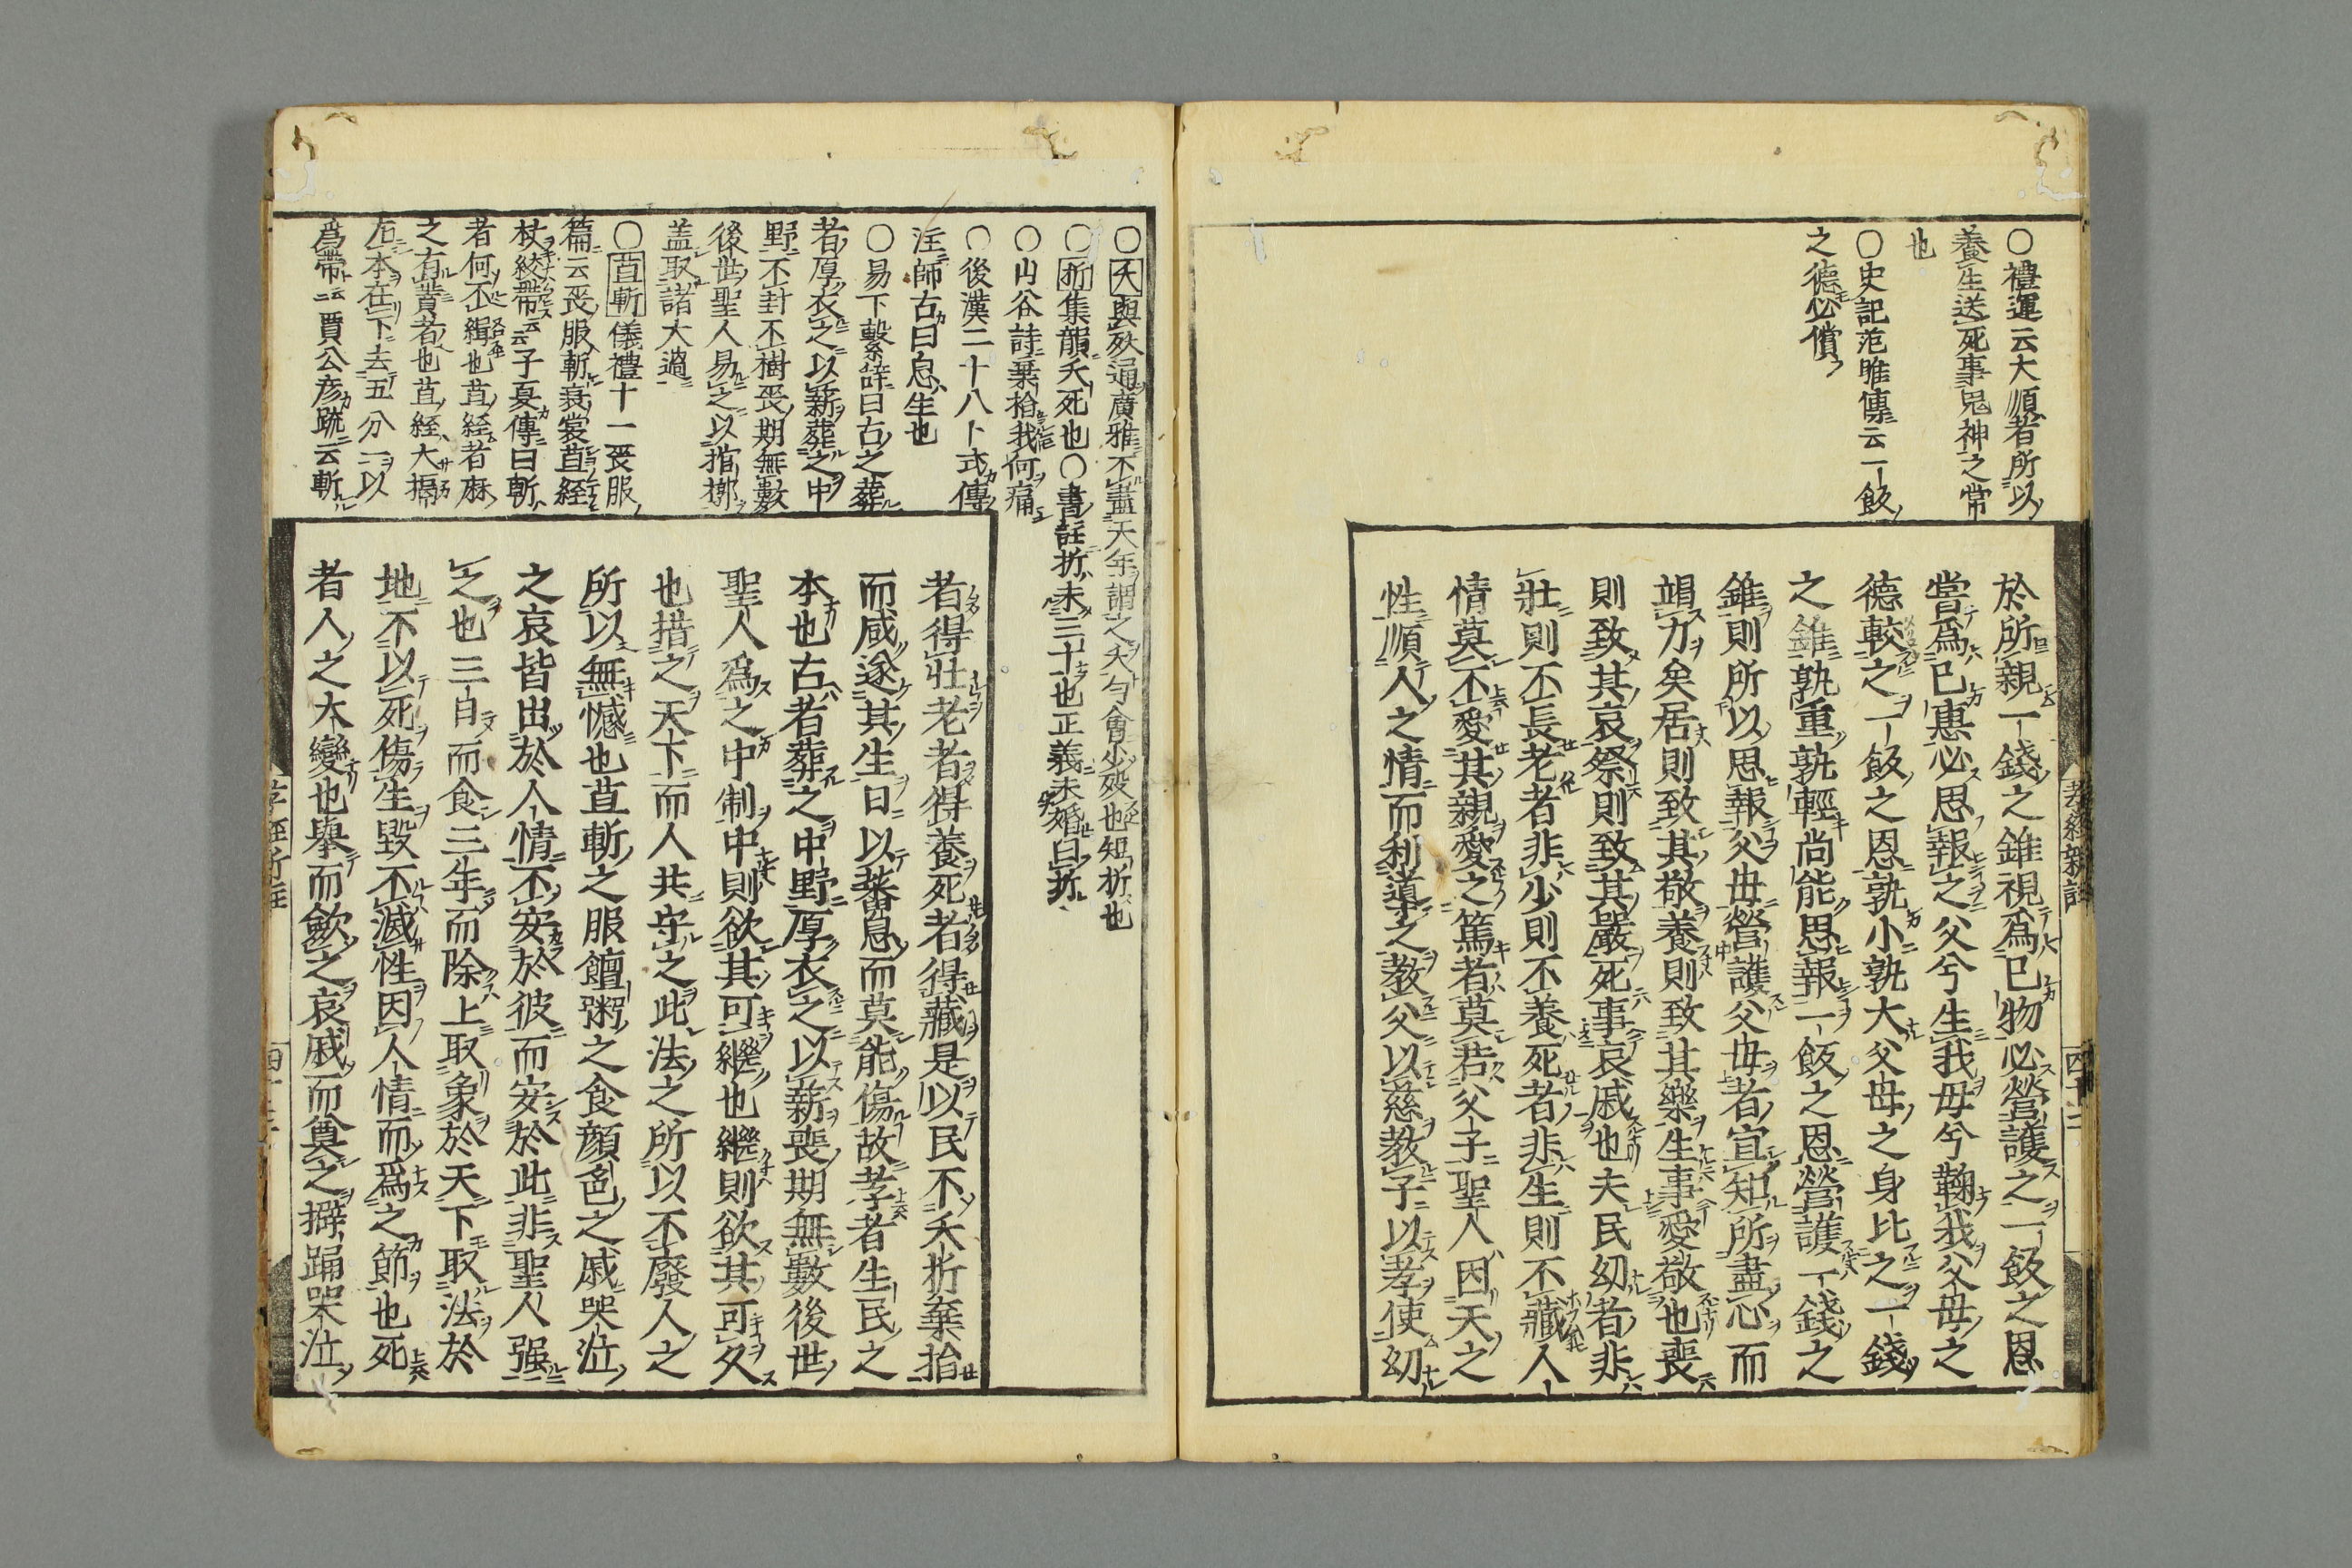 ○禮運云大順者所以
養生送死事鬼神之常
也
○史記范雎傳云一飯
之德必償
於所親一錢之錐視爲己物必營護之一飯之恩
嘗爲己惠必思報之父兮生我母兮鞠我父母之
德較之一飯之恩孰小孰大父母之身比之一錢
之錐孰重孰輕尚能思報一飯之恩營護一錢之
錐則所以思報父母營護父母者宜知所盡心而
竭力矣居則致其敬養則致其樂生事愛敬也喪
則致其哀祭則致其嚴死事哀戚也夫民幼者非
壯則不長老者非少則不養死者非生則不藏人
情莫不愛其親愛之篤者莫若父子聖人因天之
性順人之情而利導之教父以慈教子以孝使幼
孝經新註
四十二
○夭與殀通廣雅不盡天年謂之夭勻會少歿也短折也
○折集韻夭死也○書註折未三十也正義未婚曰折
○山谷詩棄捨我何痛
○後漢二十八卜式傳
注師古曰息生也
○易下繫辞曰古之葬
者厚衣之以薪葬之中
野不封不樹喪期無數
後世聖人易之以棺槨
盖取諸大過
○苴斬儀禮十一喪服
篇云喪服斬衰裳苴絰
杖絞帶云云子夏傳曰斬
者何不緝也苴絰者麻
之有蕡者也苴絰大搹
左本在下去五分一以
爲帶云云賈公彦䟽云斬
者得壯老者得養死者得藏是以民不夭折棄捨
而咸遂其生日以蕃息而莫能傷故孝者生民之
本也古者葬之中野厚衣之以薪喪期無數後世
聖人爲之中制中則欲其可繼也繼則欲其可久
也措之天下而人共守之此法之所以不廢人之
所以無憾也苴斬之服饘粥之食顔色之戚哭泣
之哀皆出於人情不安於彼而安於此非聖人强
之也三日而食三年而除上取象於天下取法於
地不以死傷生毀不滅性因人情而爲之節也死
者人之大變也擧而歛之哀戚而奠之擗踊哭泣